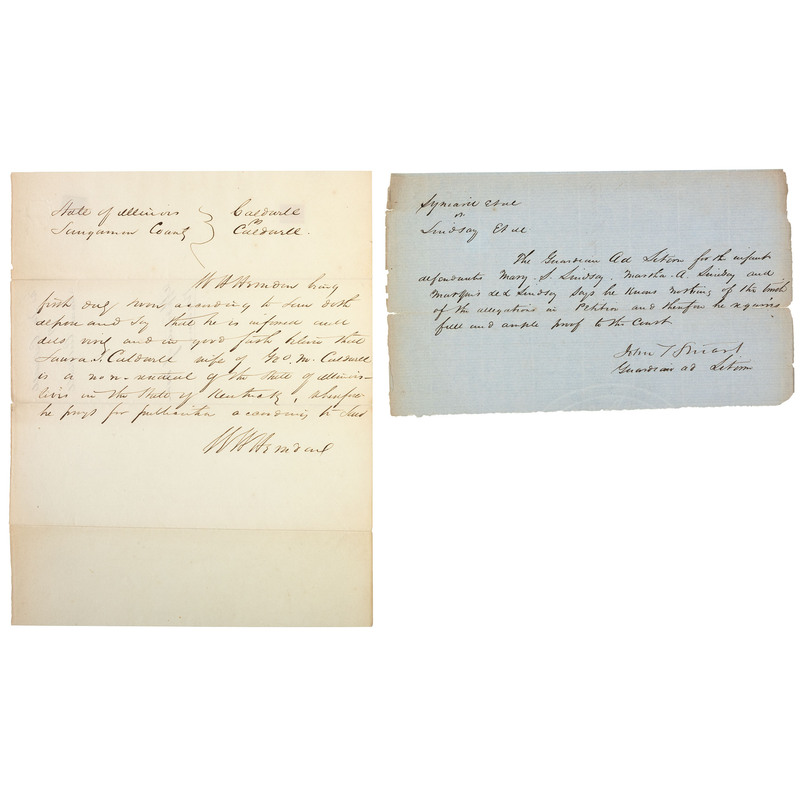 State of Illinois } Caldwell
Sangamon County } vs Caldwell.
W H Herndon being
first duly sworn according to law doth
depose and say that he is informed and
does verily and in good faith believe that
Laura I. Caldwell wife of Geo. M. Caldwell
is a non-resident of the State of Illinois—
lives in the State of Kentucky, wherefore
he prays for publication according to law
W H Herndon
et al
vs
Lindsay Et al
The Guardian Ad Litem for the infant
defendants Mary. S. Lindsay. Martha. A. Lindsay and
Marquis de L Lindsay says he knows nothing of the truth
of the allegations in Petition and therefore he requires
full and ample proof to the Court
John T Stuart
Guardian ad Litem